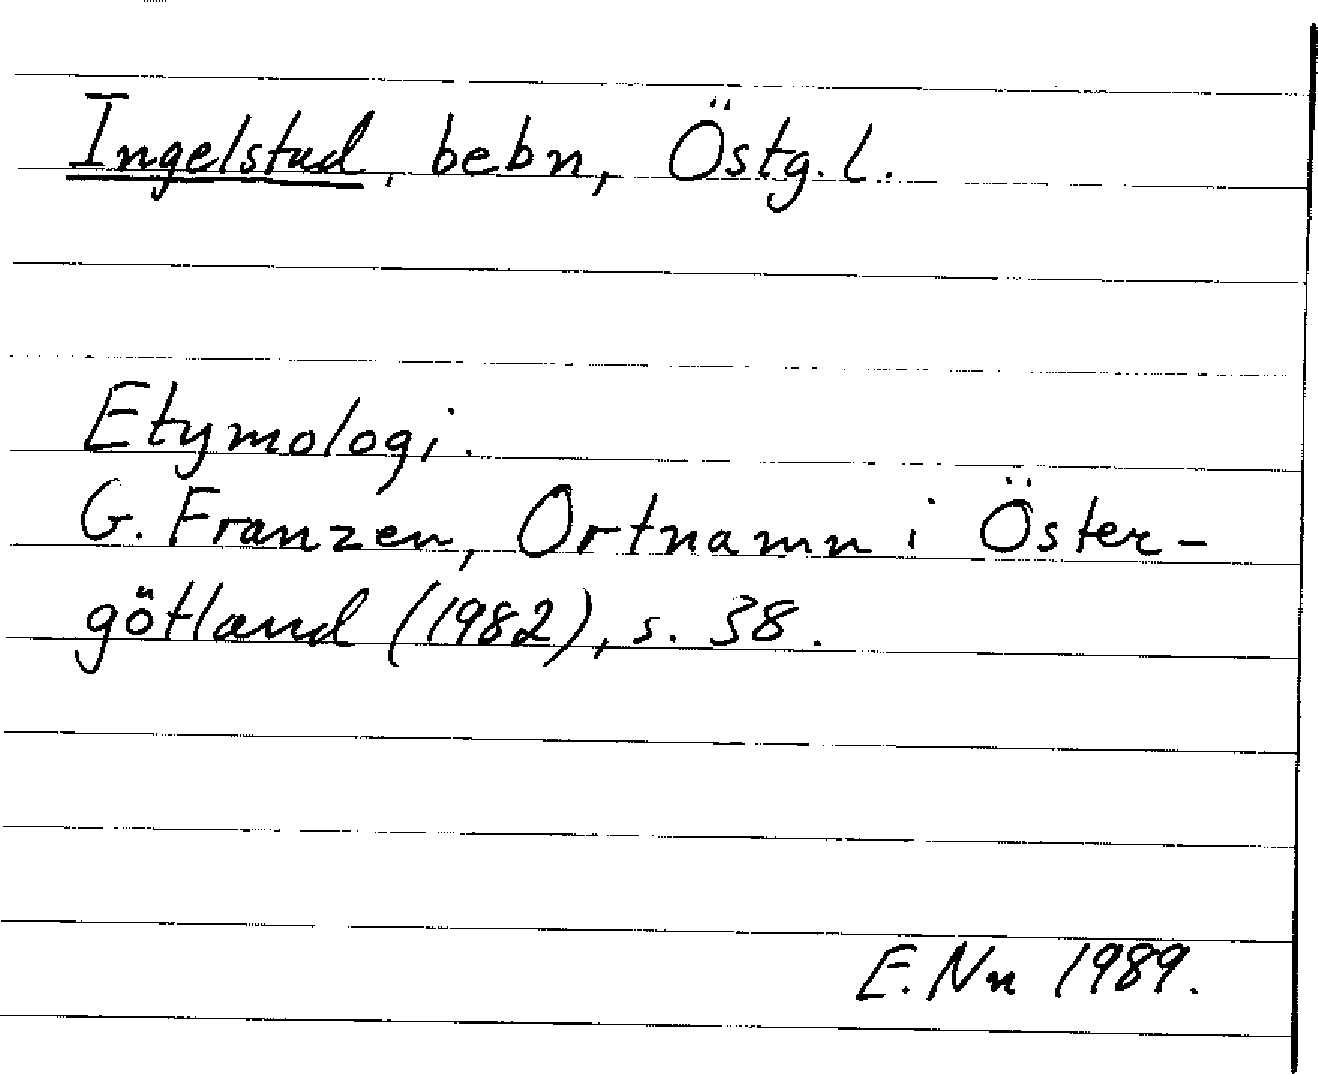 Ingelstad, bebn, Östg. l.
Etymologi.
G. Franzen, Ortnamn i Öster-
götland (1982), s. 38.
E. Nn 1989.